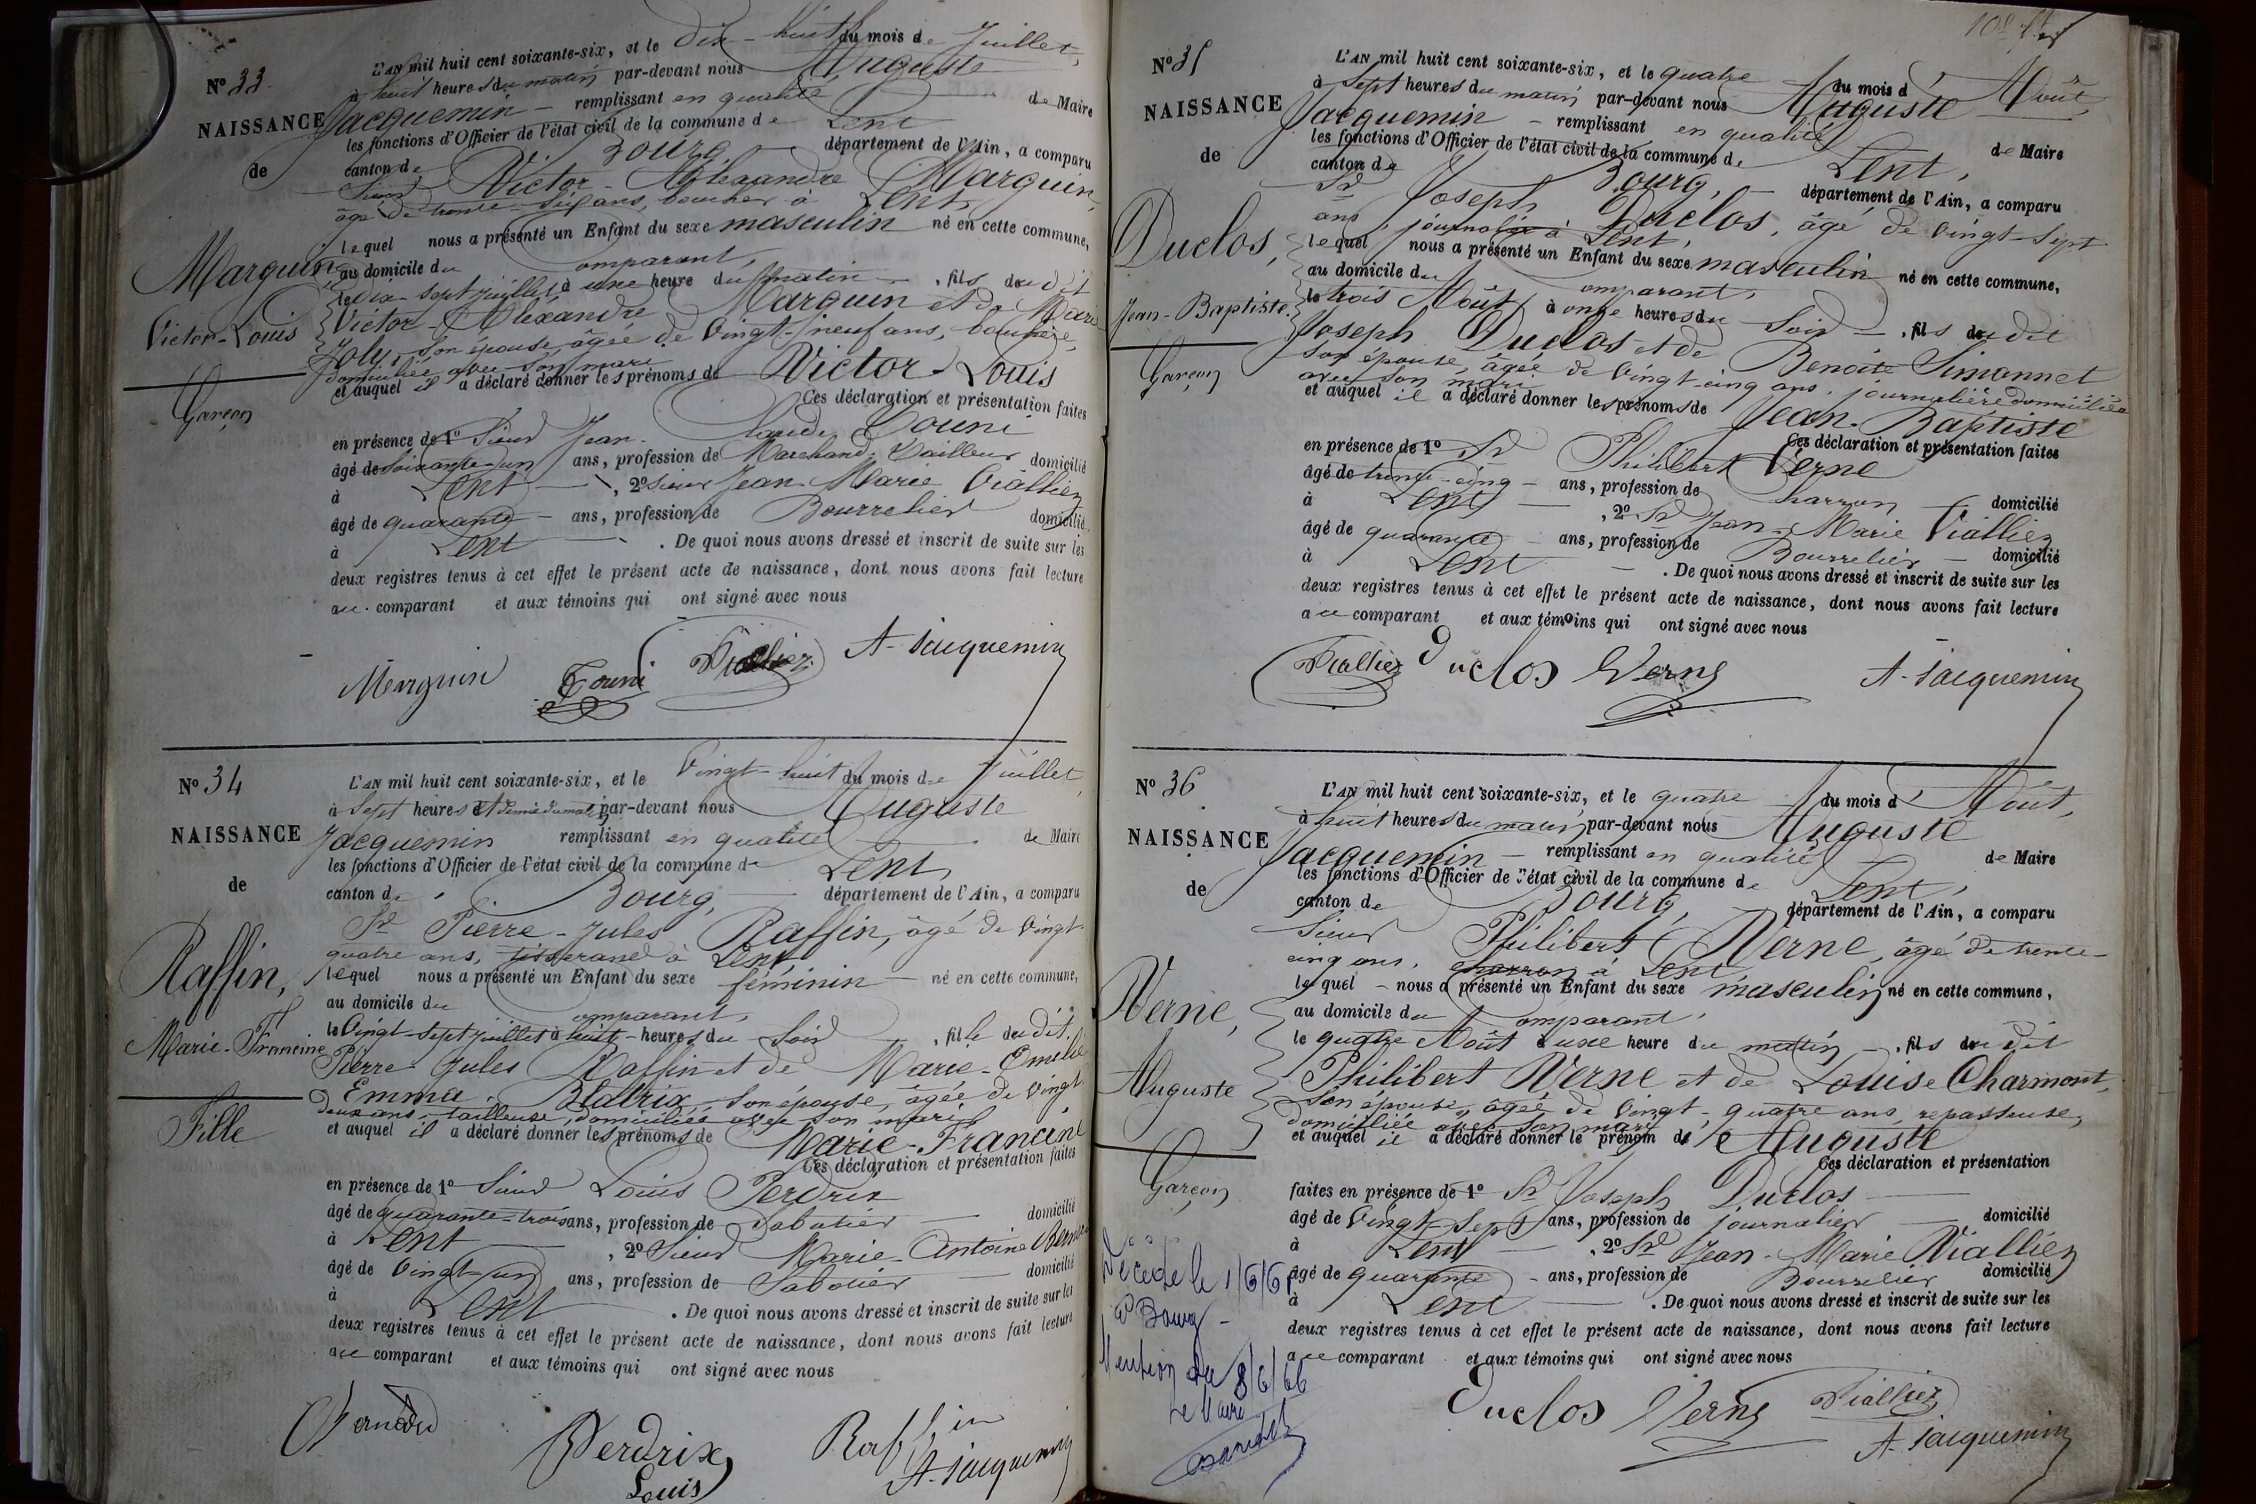 No 33.
NAISSANCE
de
Marquin
Victor-Louis
Garçon
L'AN mil huit cent soixante-six, et le dix-huit du mois de Juillet,
à huit heures du matin par-devant nous Auguste
Jacquemin - remplissant en qualité de Maire
les fonctions d'Officier de l'état civil de la commune de Lent
canton de Bourg, département de l'Ain, a comparu
Sieur Victor-Alexandre Marquin,
âgé de trente-six ans, boucher à Lent,
lequel nous a présenté un Enfant du sexe masculin né en cette commune,
au domicile du Comparant,
le dix-sept juillet à une heure du matin, fils du dit
Victor-Alexandre Marquin et de Marie
Joly, son épouse, âgée de vingt-neuf ans, bouchère,
domiciliée avec son mari
et auquel il a déclaré donner les prénoms de Victor-Louis
Ces déclaration et présentation faites
en présence de 1o Sieur Jean-Claude Couni
âgé de soixante-un ans, profession de Marchand-Tailleur domicilié
à Lent, 2o Sieur Jean-Marie Viallier
âgé de quarante ans, profession de Bourrelier domicilié
à Lent. De quoi nous avons dressé et inscrit de suite sur les
deux registres tenus à cet effet le présent acte de naissance, dont nous avons fait lecture
au comparant et aux témoins qui ont signé avec nous
Marguin Couni Viallier A. Jacquemin
No 34
NAISSANCE
de
Raffin,
Marie-Francine
Fille
L'AN mil huit cent soixante-six, et le vingt-huit du mois de Juillet,
à sept heures et demie du matin, par-devant nous Auguste
Jacquemin remplissant en qualité de Maire
les fonctions d'Officier de l'état civil de la commune de Lent
canton de Bourg, département de l'Ain, a comparu
Sr Pierre-Jules Raffin, âgé de vingt-
quatre ans, tisserand à Lent
lequel nous a présenté un Enfant du sexe féminin né en cette commune,
au domicile du Comparant,
le vingt-sept juillet à huit heures du soir, fille du dit
Pierre-Jules Raffin et de Marie-Emélie
Emma Blatrix son épouse, âgée de vingt-
deux ans, tailleuse, domiciliée avec son mari
et auquel il a déclaré donner les prénoms de Marie-Francine
Ces déclaration et présentation faites
en présence de 1o Sieur Louis Perdrix
âgé de quarante-trois ans, profession de Sabotier domicilié
à Lent, 2o Sieur Marie-Antoine
âgé de vingt-un ans, profession de Sabotier domicilié
à Lent. De quoi nous avons dressé et inscrit de suite sur les
deux registres tenus à cet effet le présent acte de naissance, dont nous avons fait lecture
au comparant et aux témoins qui ont signé avec nous
Perdrix Louis Raffin A. Jacquemin
No 35
NAISSANCE
de
Duclos,
Jean-Baptiste.
Garçon
L'AN mil huit cent soixante-six, et le quatre du mois d'Août,
à sept heures du matin par-devant nous Auguste
Jacquemin - remplissant en qualité de Maire
les fonctions d'Officier de l'état civil de la commune de Lent,
canton de Bourg, département de l'Ain, a comparu
Sr Joseph Duclos, âgé de vingt-sept
ans journalier à Lent,
lequel nous a présenté un Enfant du sexe masculin né en cette commune,
au domicile du Comparant,
le trois Août à onze heures du soir, fils du dit
Joseph Duclos et de Benoîte Simonnet
son épouse, âgée de vingt-cinq ans, journalière domiciliée
avec son mari
et auquel il a déclaré donner les prénoms de Jean-Baptiste
Ces déclaration et présentation faites
en présence de 1o Sr Philibert Verne
âgé de trente-cinq ans, profession de Charron domicilié
à Lent, 2o Sr Jean-Marie Viallier
âgé de quarante ans, profession de Bourrelier domicilié
à Lent. De quoi nous avons dressé et inscrit de suite sur les
deux registres tenus à cet effet le présent acte de naissance, dont nous avons fait lecture
au comparant et aux témoins qui ont signé avec nous
Viallier Duclos Verne A. Jacquemin
No 36
NAISSANCE
de
Verne,
Auguste
Garçon
Décédé le 1/6/66
à Bourg
Mention du 8/6/66
Le Maire
L'AN mil huit cent soixante-six, et le quatre du mois d'Août,
à huit heures du matin, par-devant nous Auguste
Jacquemin - remplissant en qualité de Maire
les fonctions d'Officier de l'état civil de la commune de Lent,
canton de Bourg, département de l'Ain, a comparu
Sieur Philibert Verne, âgé de trente-
cinq ans, charron à Lent,
lequel nous a présenté un Enfant du sexe masculin né en cette commune,
au domicile du Comparant,
le quatre Août à une heure du matin, fils du dit
Philibert Verne et de Louise Charmont,
son épouse, âgée de vingt-quatre ans, repasseuse,
domiciliée avec son mari
et auquel il a déclaré donner le prénom de Auguste
Ces déclaration et présentation
faites en présence de 1o Sr Joseph Duclos
âgé de vingt-sept ans, profession de journalier domicilié
à Lent, 2o Sr Jean-Marie Viallier
âgé de quarante ans, profession de Bourrelier domicilié
à Lent. De quoi nous avons dressé et inscrit de suite sur les
deux registres tenus à cet effet le présent acte de naissance, dont nous avons fait lecture
au comparant et aux témoins qui ont signé avec nous
Duclos Verne Viallier
A. Jacquemin